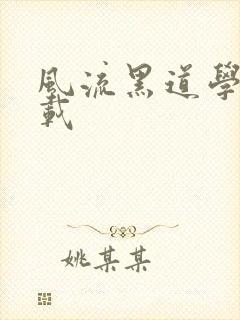 風流黑道學
載
姚某某